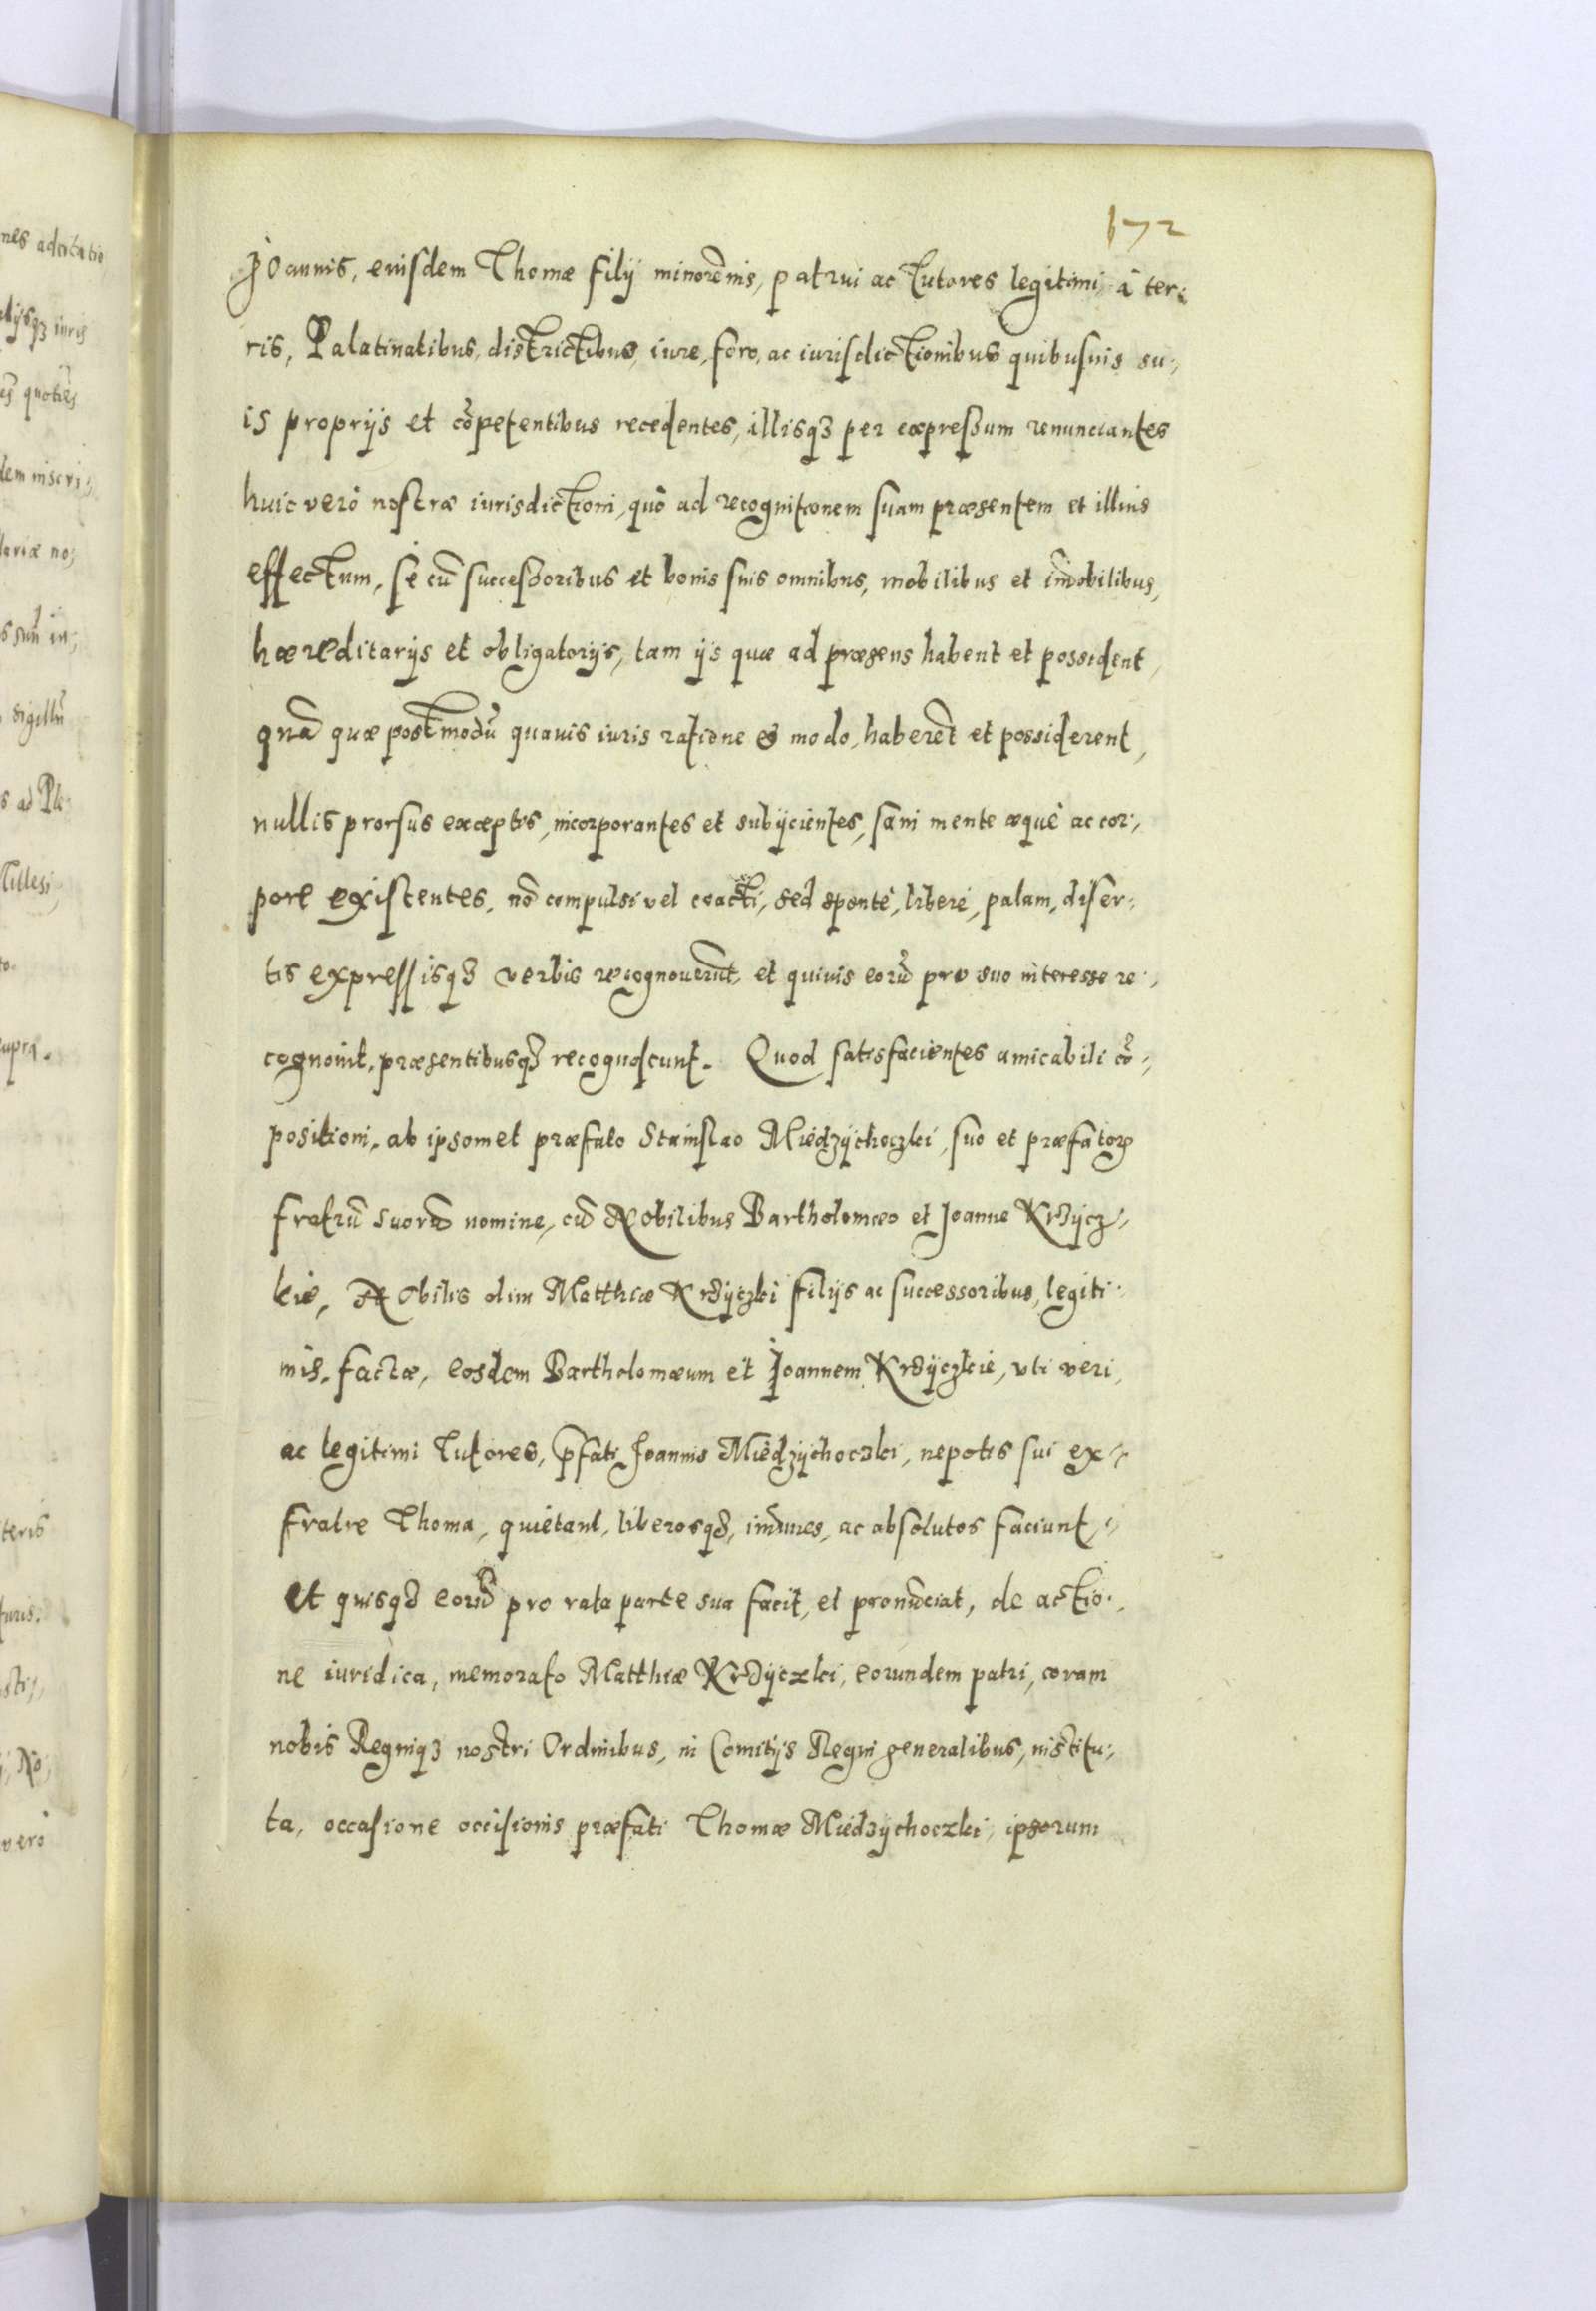 172
Joannis, eiusdem Thomæ filij minorēnis, patrui ac tutores legitimi, à ter-
ris, Palatinatibus, districtibus, iure, foro, ac iurisdictionibus quibusuis su-
is proprijs et cōpetentibus recedentes, illisqȝ per expressum renunciantes
huic verò nostræ iurisdictioni, quò ad recognitionem suam præsentem et illius
effectum, sè cū successoribus et bonis suis omnibus, mobilibus et īmobilibus,
hæreditarijs et obligatorijs, tam ijs quæ ad præsens habent et possident,
quā quæ postmodū quauis iuris ratione et modo, haberēt et possiderent,
nullis prorsus exceptis, incorporantes et subijcientes, sani mente æquè ac cor-
pore existentes, nō compulsi vel coacti, sed spontè, liberè, palam, diser-
tis expressisqȝ verbis recognouerūt, et quiuis eorū pro suo interesse re-
cognouit, præsentibusqȝ recognoscunt. Quod satisfacientes amicabili cō-
positioni, ab ipsomet præfato Stanislao Miedzychoczki, suo et præfatoꝝ
fratrū suorū nomine, cū Nobilibus Bartholomæo et Joanne Krzycz-
kie, Nobilis olim Matthiæ Krzyczki filijs ac successoribus, legiti-
mis, factæ, eosdem Bartholomæum et Joannem Krzyczkie, vti veri,
ac legitimi Tutores, p̄fati Joannis Miedzychoczki, nepotis sui ex
fratre Thoma, quietant, liberosqȝ, īmunes, ac absolutos faciunt,
et quisqȝ eorū pro rata parte sua facit, et pronūciat, de actio-
ne iuridica, memorato Matthiæ Krzyczki, eorundem patri, coram
nobis Regniqȝ nostri Ordinibus, in Comitijs Regni generalibus, institu-
ta, occasione occisionis præfati Thomæ Miedzychoczki, ipsorum